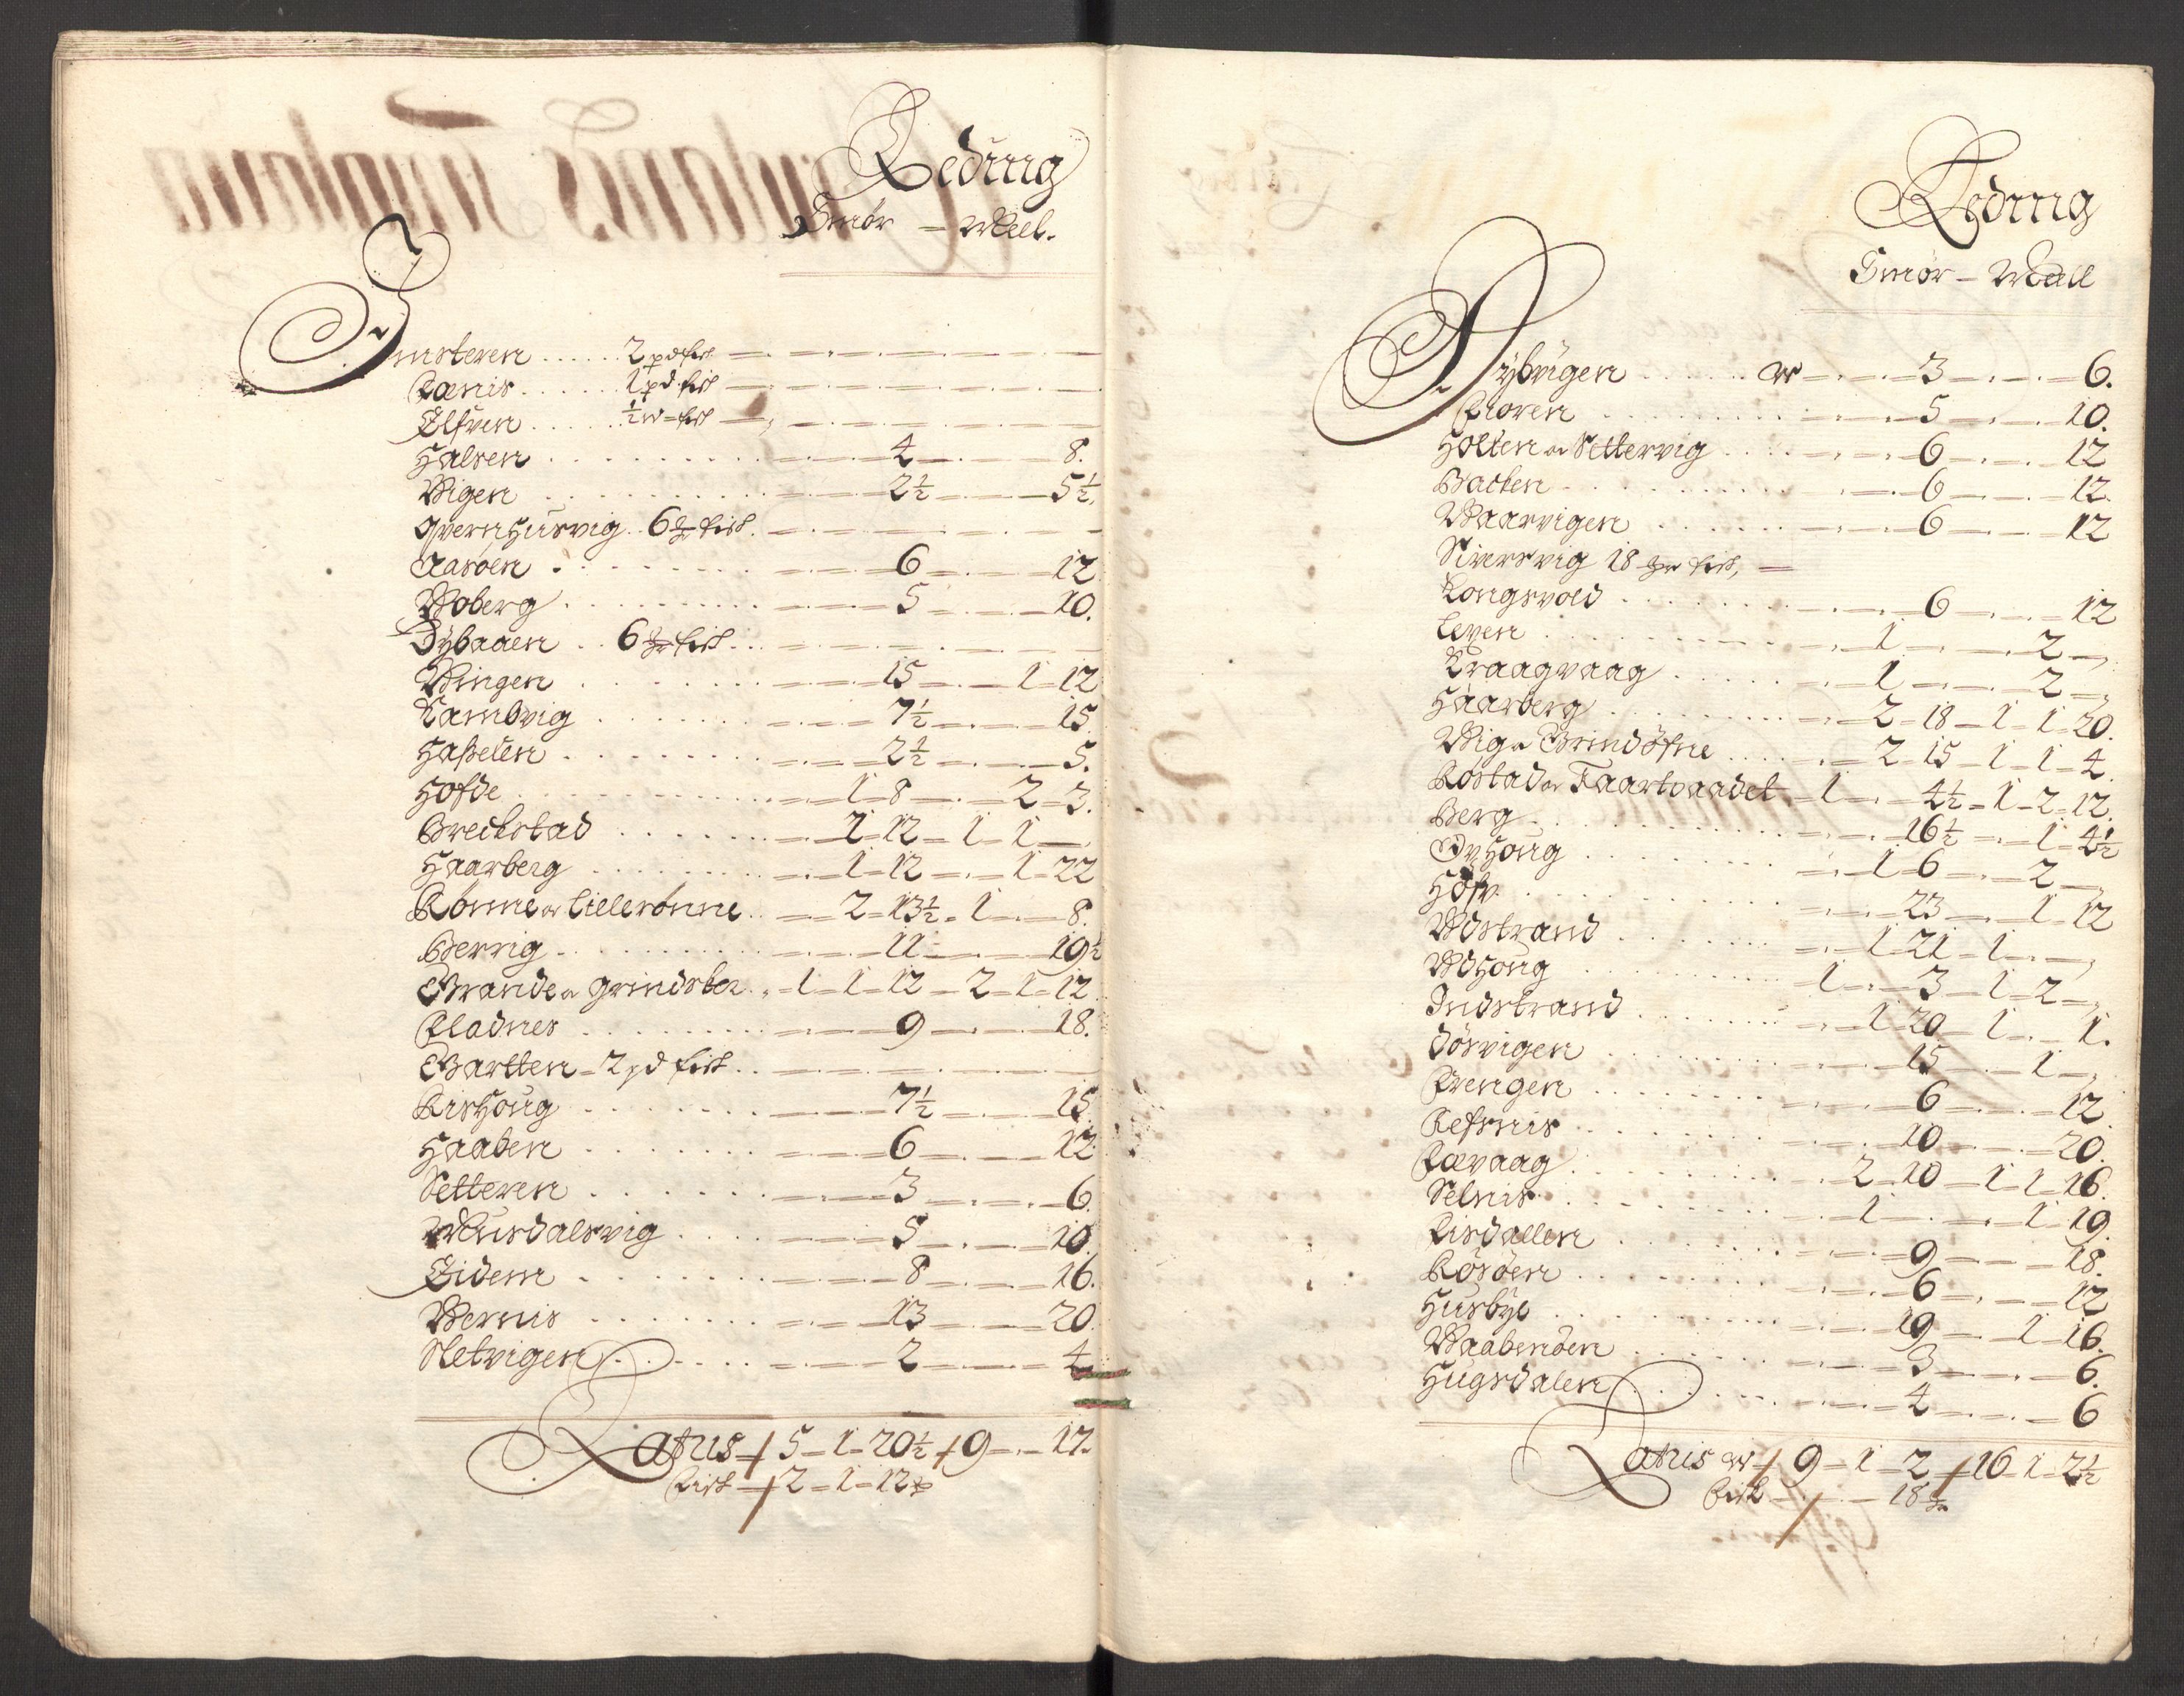 Leding
Smør – Meel.
Imsteren ...... 2 pd fisk
Rœnis ...... 1 pd fisk
Elfven ..... ½ w – fisk
Halsen ... 4 — 8.
Wigen ... 2½ — 5½
Qvernhusvig .. 6 fisk.
Aasøen ... 6 — 12
Woberg ... 5 — 10.
Dybaaen .. 6 fisk ..
Wingen ... 15 — 1 – 12
Kambvig ... 7½ — 15
Hasselen ... 2½ — 5.
Hofde ... 1 – 8 — 2 – 3.
Breckstad ... 2 – 12 – 1 – 1 –
Haarberg ... 1 – 12 – 1 – 22
Rønne oc Lillerønne ... 2 – 13½ – 1 — 8.
Berrig ... 11 — 19½
Grande oc grindsber .. 1 – 1 – 12 – 2 – 1 – 12
Fladnes ... 9 — 18.
Gartten – 2 pd fisk ..
Rishoug ... 7½ — 15
Haaben ... 6 — 12
Setteren ... 3 — 6.
Musdalsvig ... 5 — 10.
Eidem ... 8 — 16.
Wernis ... 13 — 20.
Sletvigen ... 2 — 4
Latus – 5 – 1 – 20½ – 9 – – 17.
Fisk – 2 – 1 – 12
Leding
Smør – Mell
Dybvigen ... w — 3 — 6.
Fioren ... 5 — 10.
Holten oc Settervig ... 6 — 12
Backen ... 6 — 12.
Waarvigen ... 6 — 12
Siversvig 18 fisk, —
Kongsvold ... 6 — 12
Leven ... 1 — 2 –
Kraagvaag ... 1 — 2 –
Haarberg ... 2 – 18 – 1 – 1 – 20.
Wig oc Grindøfne ... 2 – 15 – 1 – 1 – 4.
Røstad oc Taartvaadet – 1 — 4½ – 1 – 2 – 12.
Berg ... 16½ — 1 – 4½
Ophoug ... 1 – 6 — 2 –
Hofv ... 23 — 1 – 12
Wdstrand ... 1 – 21 – 1 –
Wdhoug ... 1 — 3 – 1 – 2 –
Indstrand ... 1 – 20 – 1 – – 1.
Døsvigen ... 15 — 1 –
Frengen ... 6 — 12
Refsnis ... 10 — 20.
Rævaag ... 2 – 10 – 1 – 1 – 16.
Selnis ... 1 — 1 – 19.
Risdallen ... 9 — 18.
Røsøen ... 6 — 12
Husbye ... 19 — 1 – 16.
Waabenøen ... 3 — 6.
Hugsdalen ... 4 — 6
Latus w – 9 – 1 – 2 – 16 – 1 – 2½
Fisk — 18